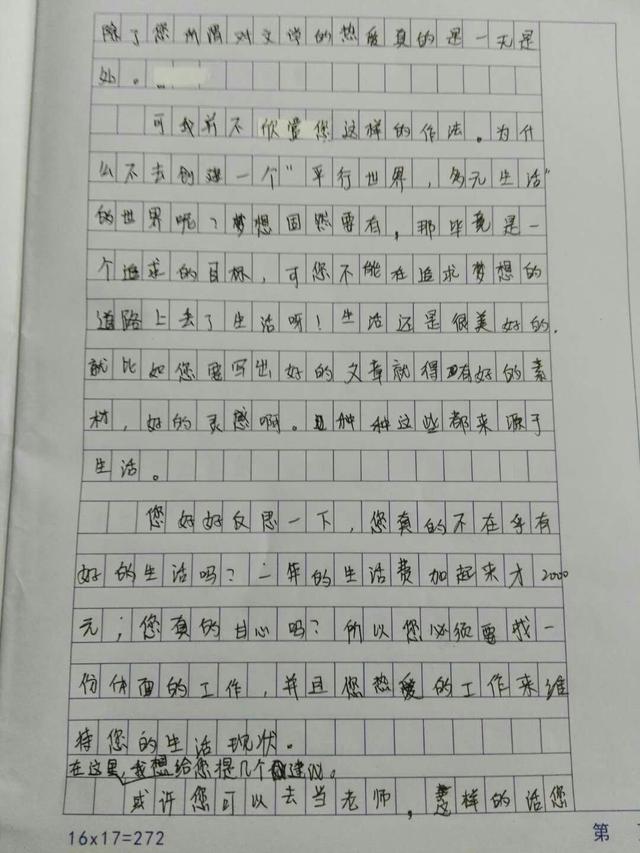 除了您所谓对文学的热爱真的是一无是
处。
可我并不欣赏您这样的作法。为什
么不去创建一个“平行世界，多元生活”
的世界呢？梦想固然要有，那毕竟是一
个追求的目标，可您不能在追求梦想的
道路上丢了生活呀！生活还是很美好的，
就比如您要写出好的文章就得有好的素
材，好的灵感啊。且种种这些都来源于
生活。
您好好反思一下，您真的不在乎有
好的生活吗？二年的生活费加起来才2000
元；您真的甘心吗？所以您必须要找一
份体面的工作，并且您热爱的工作来维
持您的生活现状。
在这里，我想给您提几个建议。
或许您可以去当老师，这样的话您
16x17=272
第